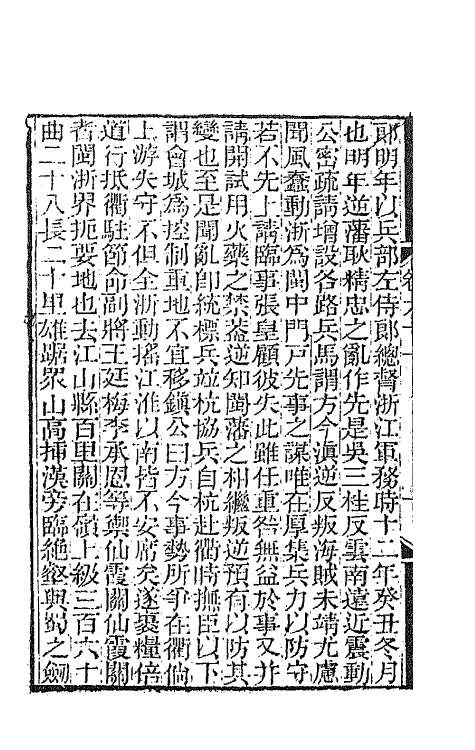 郎明年以兵部左侍郎總督浙江軍務時十二年癸丑冬月
也明年逆藩耿精忠之亂作先是吳三桂反雲南遠近震動
公密疏請增設各路兵馬謂方今滇逆反叛海賊未靖尤慮
聞風蠢動浙為閩中門戸先事之謀唯在厚集兵力以防守
若不先上請臨事張皇顧彼失此雖任重咎無益於事又幷
請開試用火藥之禁葢逆知閩藩之相繼叛逆預有以防其
變也至是聞亂卽統標兵並杭協兵自杭赴衢時撫臣以下
謂會城為控制重地不宜移鎮公曰方今事勢所爭在衢倘
上游失守不但全浙動搖江淮以南皆不安席矣遂裹糧倍
道行抵衢駐節命副將王廷梅李承恩等禦仙霞關仙霞關
者閩浙界扼要地也去江山縣百里關在嶺上級三百六十
曲二十八長二十里雄踞眾山高揷漢旁臨絶壑與蜀之劍